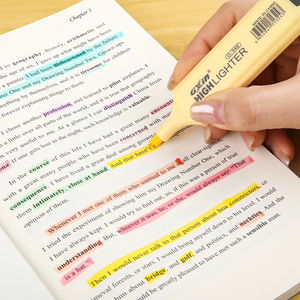 Chapter 1
to geography, history, arithmetic and
the age of six, I gave up what might have been
painter. I had been disheartened by the failure
Number One and my Drawing Number Two. Grown-ups
themselves, and it is tiresome for children
forever explaining things to them.
chose another profession, and learned to pilot airplanes. I
flown a little over all parts of the world; and it is true that geography
has been very useful to me. At a glance I can distinguish China from
Arizona. If one gets lost in the night, such knowledge is valuable.
In the course of this life I have had a great many encounters
with a great many people who have been concerned with matters of
consequence. I have lived a great deal among grown-ups. I have seen
them intimately, close at hand. And that hasn't
opinion of them.
Whenever I met one of them who seemed to me at all clear-sighted,
I tried the experiment of showing him my Drawing Number One, which
I have always kept. I would try to find out, so, if this was a person of true
understanding. But, whoever it was, he, or she, would always say: "That
is a hat."
Then I would never talk to that person about boa constrictors, or
primeval forests, or stars. I would bring myself down to his level. I would
talk to him about bridge, and golf, and politics, and neckties. And the
would be greatly pleased to have met such a sensible man.
HIGHLIGHTER